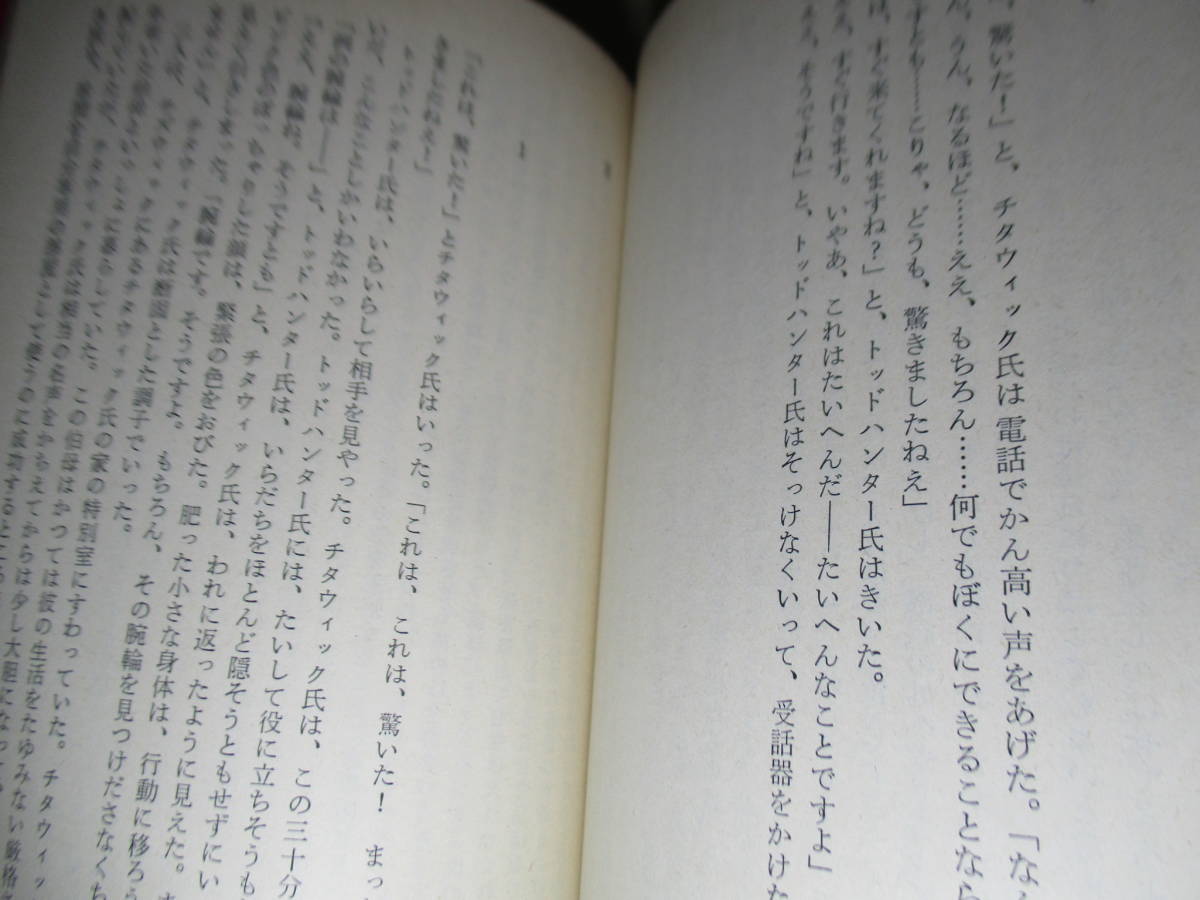 、驚いた!」と、チタウィック氏は電話でかん高い声をあげた。「な
ん、うん、なるほど……ええ、もちろん……何でもぼくにできることなら
すとも……こりゃ、どうも、驚きましたねえ」
は、すぐ来てくれますね?」と、トッドハンター氏はきいた。
ええ、すぐ行きます。いやあ、これはたいへんだ――たいへんなことですよ」
そうですね」と、トッドハンター氏はそっけなくいって、受話器をかけた
1
「これは、驚いた!」とチタウィック氏はいった。「これは、これは、驚いた! まっ
きましたねえ!」
トッドハンター氏は、いらいらして相手を見やった。チタウィック氏は、この三十分
いだ、こんなことしかいわなかった。トッドハンター氏には、たいして役に立ちそうも
「例の腕輪は――」と、トッドハンター氏は、いらだちをほとんど隠そうともせずにい
「ええ、腕輪ね。そうですとも」と、チタウィック氏は、われに返ったように見えた。
ぽっちゃりした顔は、緊張の色をおびた。肥った小さな身体は、行動に移ろう
「腕輪です。そうですよ。もちろん、その腕輪を見つけださなくち
と、チタウィック氏は断固とした調子でいった。
にあるチタウィック氏の家の特別室にすわっていた。チタウィッ
いっしょに暮らしていた。この伯母はかつては彼の生活をたゆみない厳格
チタウィック氏は相当の名声をかちえてからは少し大胆になって
として使うのに成功するところ